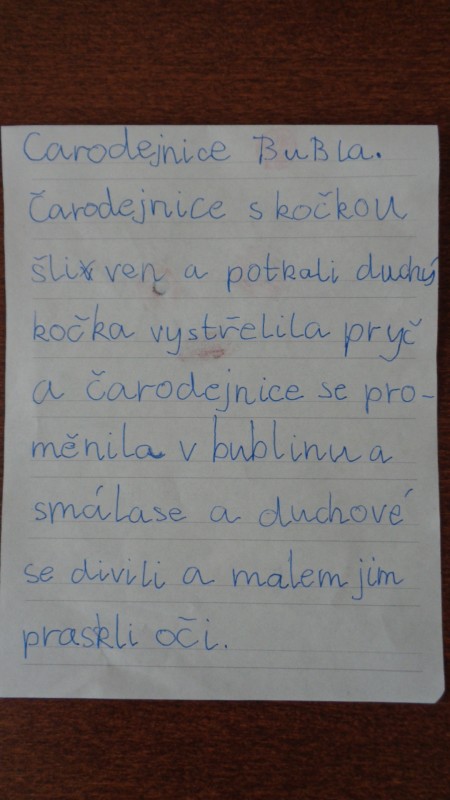 Carodejnice BuBla.
Čarodejnice s kočkou
šli ven a potkali duchy
kočka vystřelila pryč
a čarodejnice se pro-
měnila v bublinu a
smálase a duchové
se divili a malem jim
praskli oči.